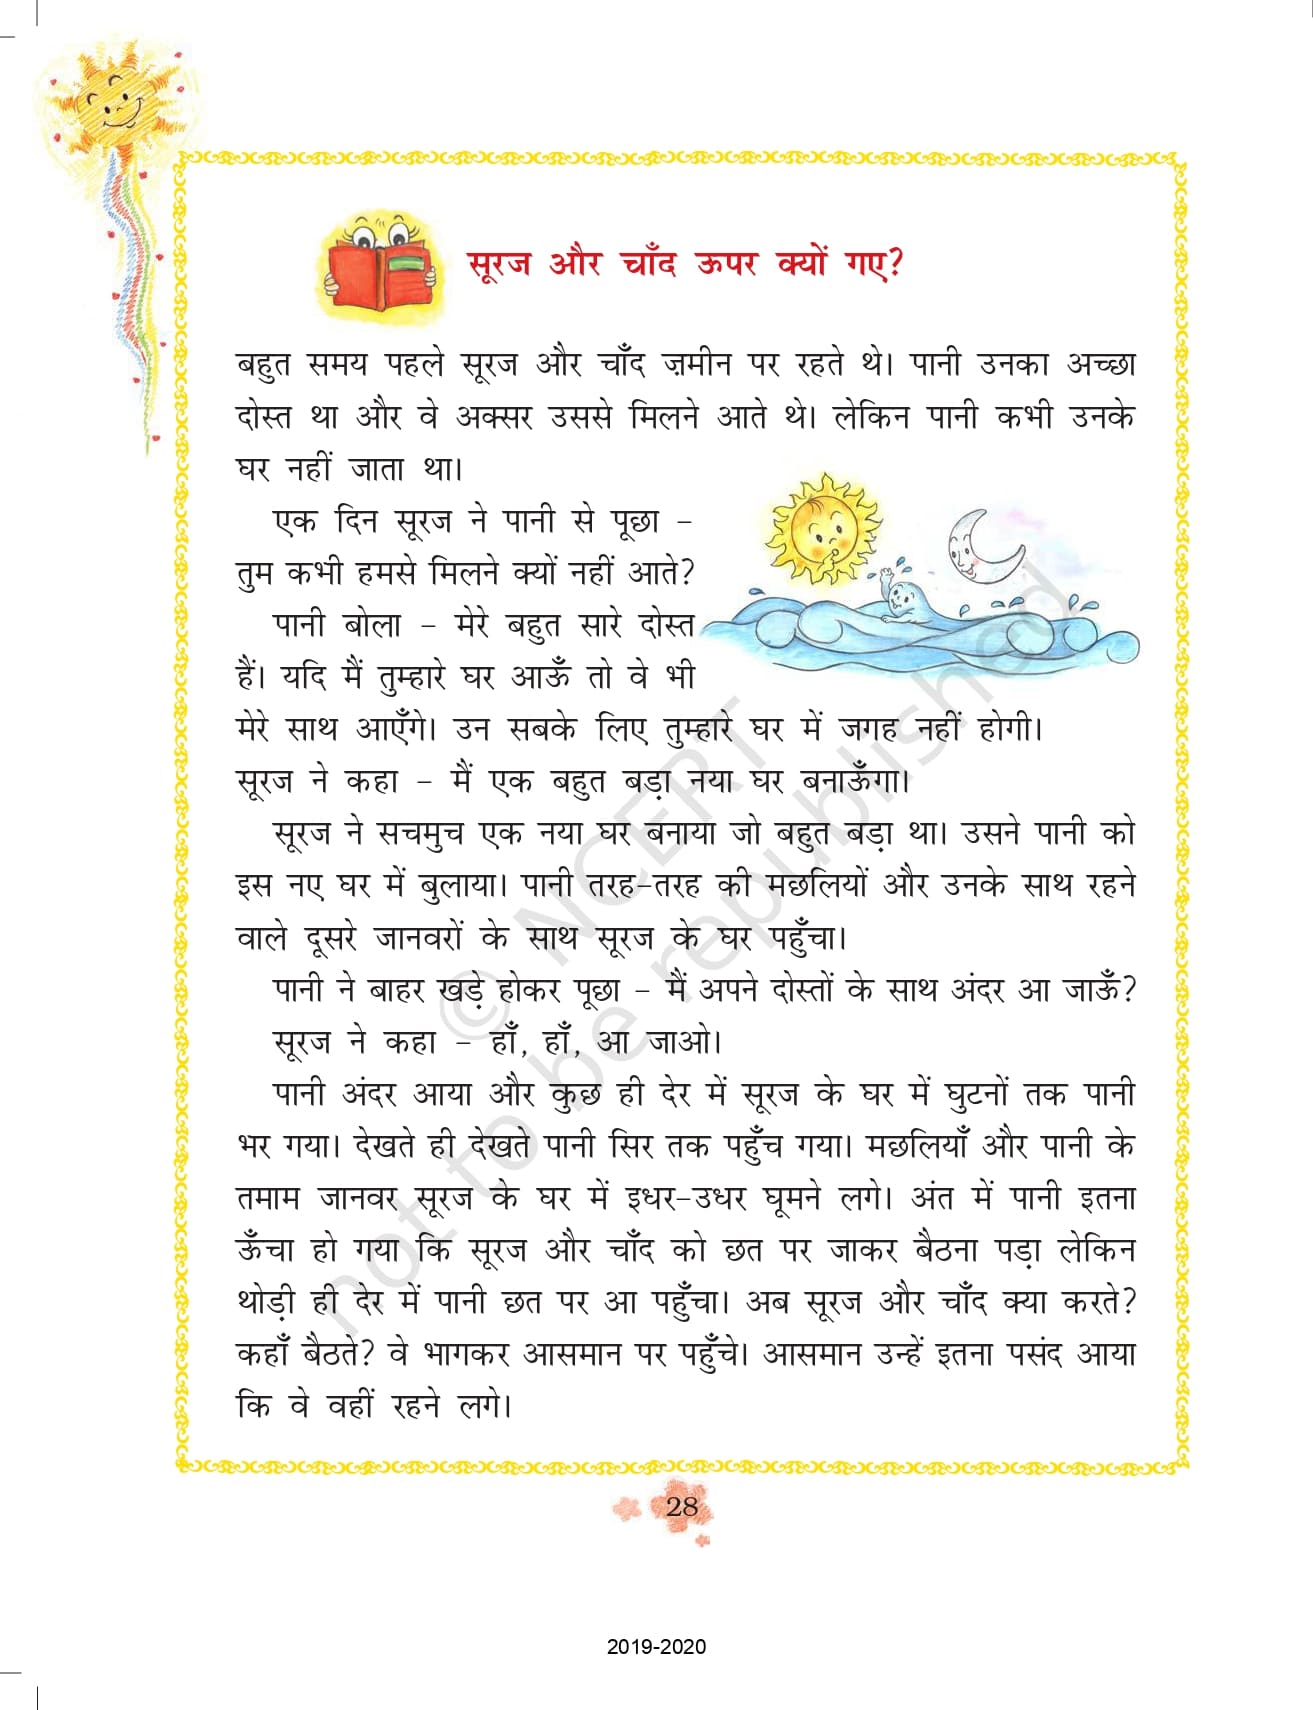 सूरज और चाँद ऊपर क्यों गए?
बहुत समय पहले सूरज और चाँद ज़मीन पर रहते थे। पानी उनका अच्छा
दोस्त था और वे अक्सर उससे मिलने आते थे। लेकिन पानी कभी उनके
घर नहीं जाता था।
एक दिन सूरज ने पानी से पूछा –
तुम कभी हमसे मिलने क्यों नहीं आते?
पानी बोला – मेरे बहुत सारे दोस्त
हैं। यदि मैं तुम्हारे घर आऊँ तो वे भी
मेरे साथ आएँगे। उन सबके लिए तुम्हारे घर में जगह नहीं होगी।
सूरज ने कहा – मैं एक बहुत बड़ा नया घर बनाऊँगा।
सूरज ने सचमुच एक नया घर बनाया जो बहुत बड़ा था। उसने पानी को
इस नए घर में बुलाया। पानी तरह-तरह की मछलियों और उनके साथ रहने
वाले दूसरे जानवरों के साथ सूरज के घर पहुँचा।
पानी ने बाहर खड़े होकर पूछा – मैं अपने दोस्तों के साथ अंदर आ जाऊँ?
सूरज ने कहा – हाँ, हाँ, आ जाओ।
पानी अंदर आया और कुछ ही देर में सूरज के घर में घुटनों तक पानी
भर गया। देखते ही देखते पानी सिर तक पहुँच गया। मछलियाँ और पानी के
तमाम जानवर सूरज के घर में इधर-उधर घूमने लगे। अंत में पानी इतना
ऊँचा हो गया कि सूरज और चाँद को छत पर जाकर बैठना पड़ा लेकिन
थोड़ी ही देर में पानी छत पर आ पहुँचा। अब सूरज और चाँद क्या करते?
कहाँ बैठते? वे भागकर आसमान पर पहुँचे। आसमान उन्हें इतना पसंद आया
कि वे वहीं रहने लगे।
© NCERT
not to be republished
28
2019-2020